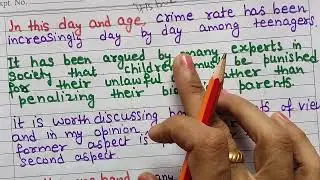 pt. No.
In this day and age, crime rate has been
increasingly day by day among teenagers
It has been argued by many experts in
society that children must be punished
for their unlawful rather than
penalizing their parents.
it is worth discussing of view
and in my opinion
former aspect is
second aspect